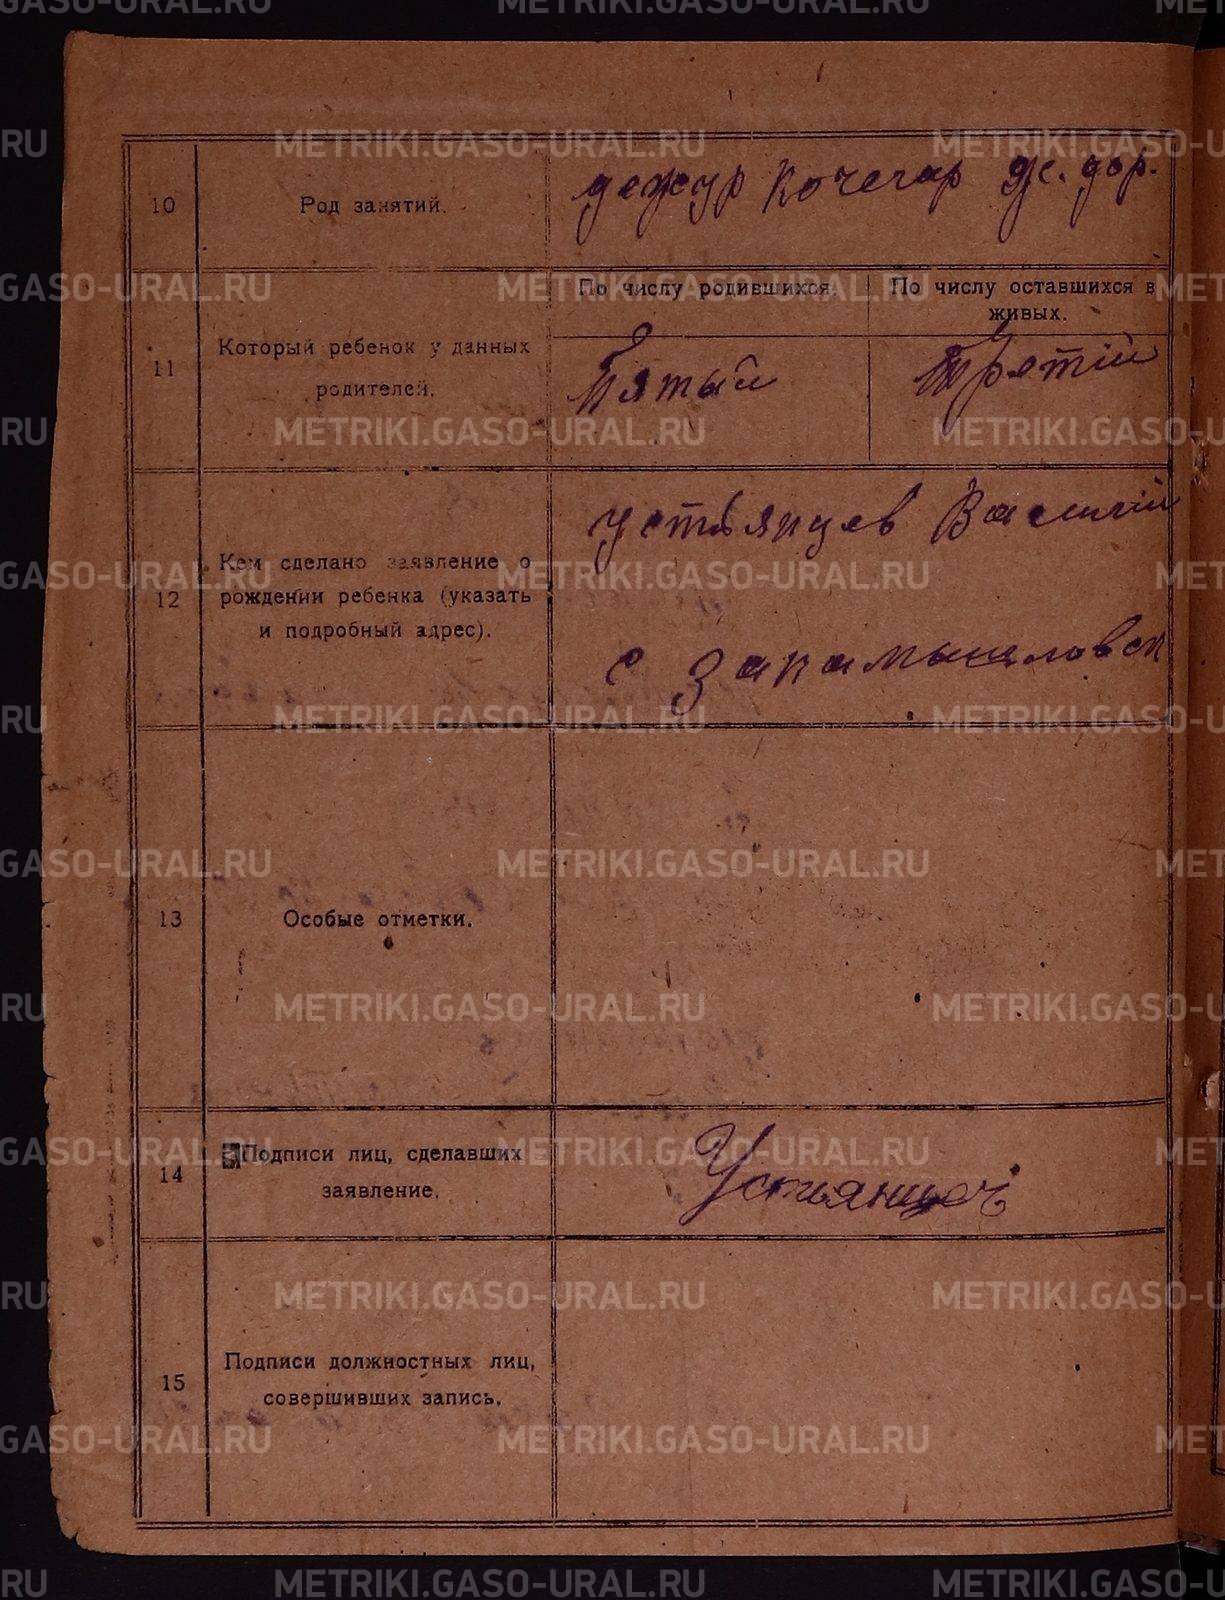 10
Род занятий.
дежур кочегар ж. дор.
11
Который ребенок у данных
родителей.
По числу родившихся.
По числу оставшихся в
живых.
Пятый
Третій
12
Кем сделано заявление о
рождении ребенка (указать
и подробный адрес).
Устьянцев Василий
с Закамышловск
13
Особые отметки.
14
Подписи лиц, сделавших
заявление.
Устьянцев
15
Подписи должностных лиц,
совершивших запись.
METRIKI.GASO-URAL.RU